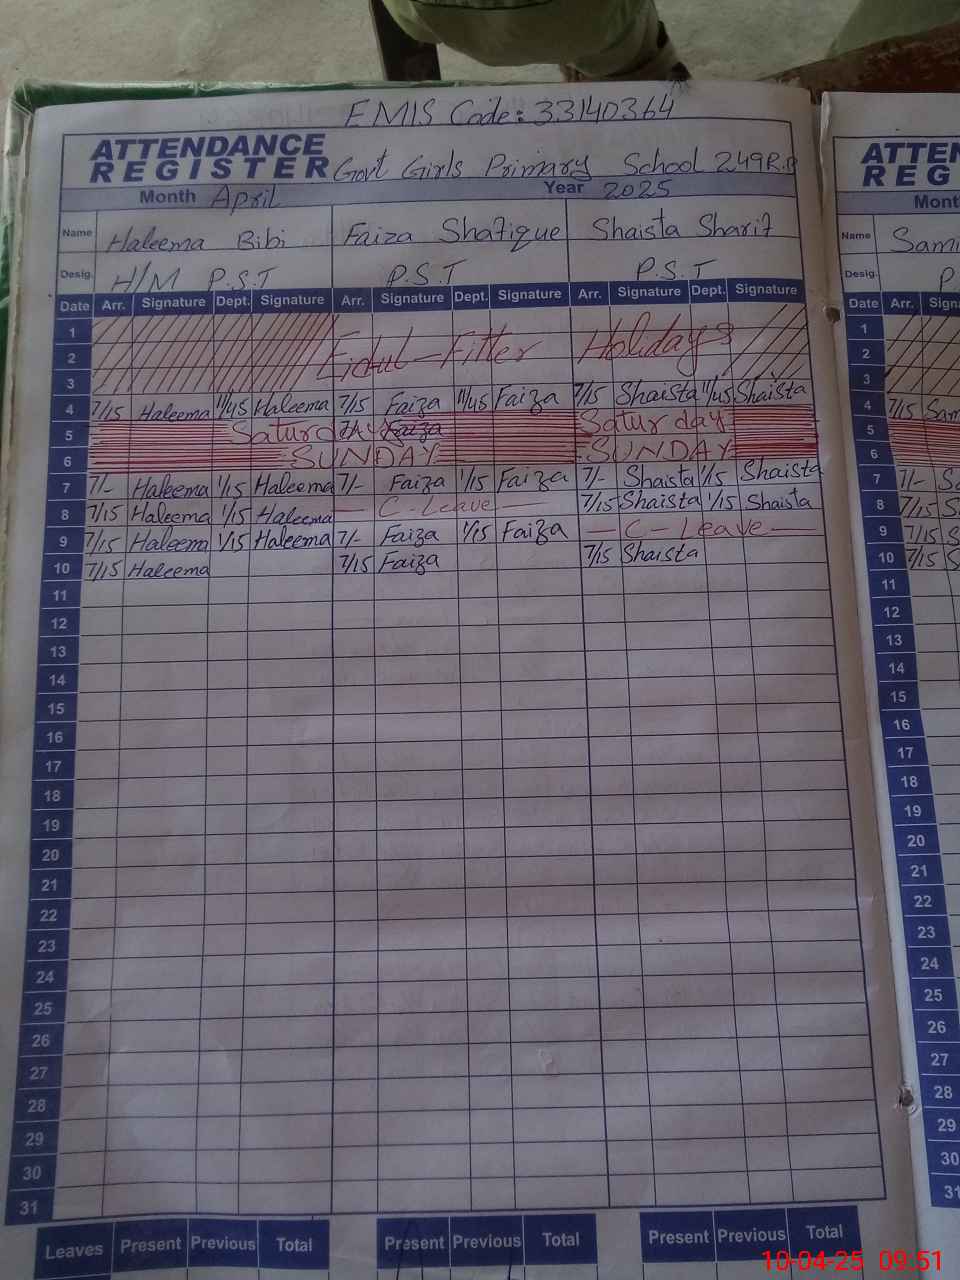 EMIS Code: 33140364
ATTENDANCE REGISTER Govt Girls Primary School 249R.B
Month April Year 2025
Name Haleema Bibi Faiza Shafique Shaista Sharif
Desig. H/M P.S.T P.S.T P.S.T
Date Arr. Signature Dept. Signature Arr. Signature Dept. Signature Arr. Signature Dept. Signature
1
2 Eidul-Fitter Holidays
3
4 7/15 Haleema 11/45 Haleema 7/15 Faiza 11/45 Faiza 7/15 Shaista 11/45 Shaista
5 Saturday Faiza Saturday
6 SUNDAY SUNDAY
7 7/- Haleema 1/15 Haleema 7/- Faiza 1/15 Faiza 7/- Shaista 1/15 Shaista
8 7/15 Haleema 1/15 Haleema — C-Leave — 7/15 Shaista 1/15 Shaista
9 7/15 Haleema 1/15 Haleema 7/- Faiza 1/15 Faiza — C-Leave —
10 7/15 Haleema 7/15 Faiza 7/15 Shaista
11
12
13
14
15
16
17
18
19
20
21
22
23
24
25
26
27
28
29
30
31
Leaves Present Previous Total Present Previous Total Present Previous Total
ATTEN
REG
Month
Name Sami
Desig. P
Date Arr. Sign
1
2
3
4 7/15 Sam
5
6
7 7/- S
8 7/15 S
9 7/15 S
10 7/15 S
11
12
13
14
15
16
17
18
19
20
21
22
23
24
25
26
27
28
29
30
31
10-04-25 09:51